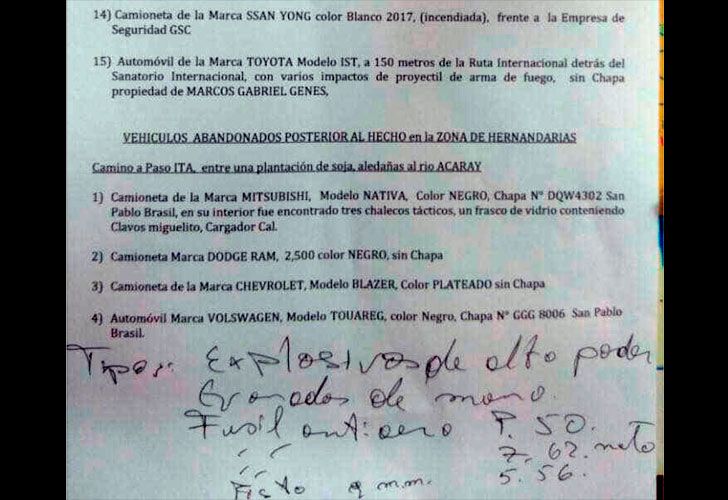 14) Camioneta de la Marca SSAN YONG color Blanco 2017, (incendiada), frente a la Empresa de
Seguridad GSC
15) Automóvil de la Marca TOYOTA Modelo IST, a 150 metros de la Ruta Internacional detrás del
Sanatorio Internacional, con varios impactos de proyectil de arma de fuego, sin Chapa
propiedad de MARCOS GABRIEL GENES,
VEHICULOS ABANDONADOS POSTERIOR AL HECHO en la ZONA DE HERNANDARIAS
Camino a Paso ITA, entre una plantación de soja, aledañas al rio ACARAY
1) Camioneta de la Marca MITSUBISHI, Modelo NATIVA, Color NEGRO, Chapa N° DQW4302 San
Pablo Brasil, en su interior fue encontrado tres chalecos tácticos, un frasco de vidrio conteniendo
Clavos miguelito, Cargador Cal.
2) Camioneta Marca DODGE RAM, 2,500 color NEGRO, sin Chapa
3) Camioneta de la Marca CHEVROLET, Modelo BLAZER, Color PLATEADO sin Chapa
4) Automóvil Marca VOLSWAGEN, Modelo TOUAREG, color Negro, Chapa N° GGG 8006 San Pablo
Brasil.
Tipos: Explosivos de alto poder
Granadas de mano.
Fusil antiaereo P. 50.
7. 62. 
5. 56.
9 m.m.